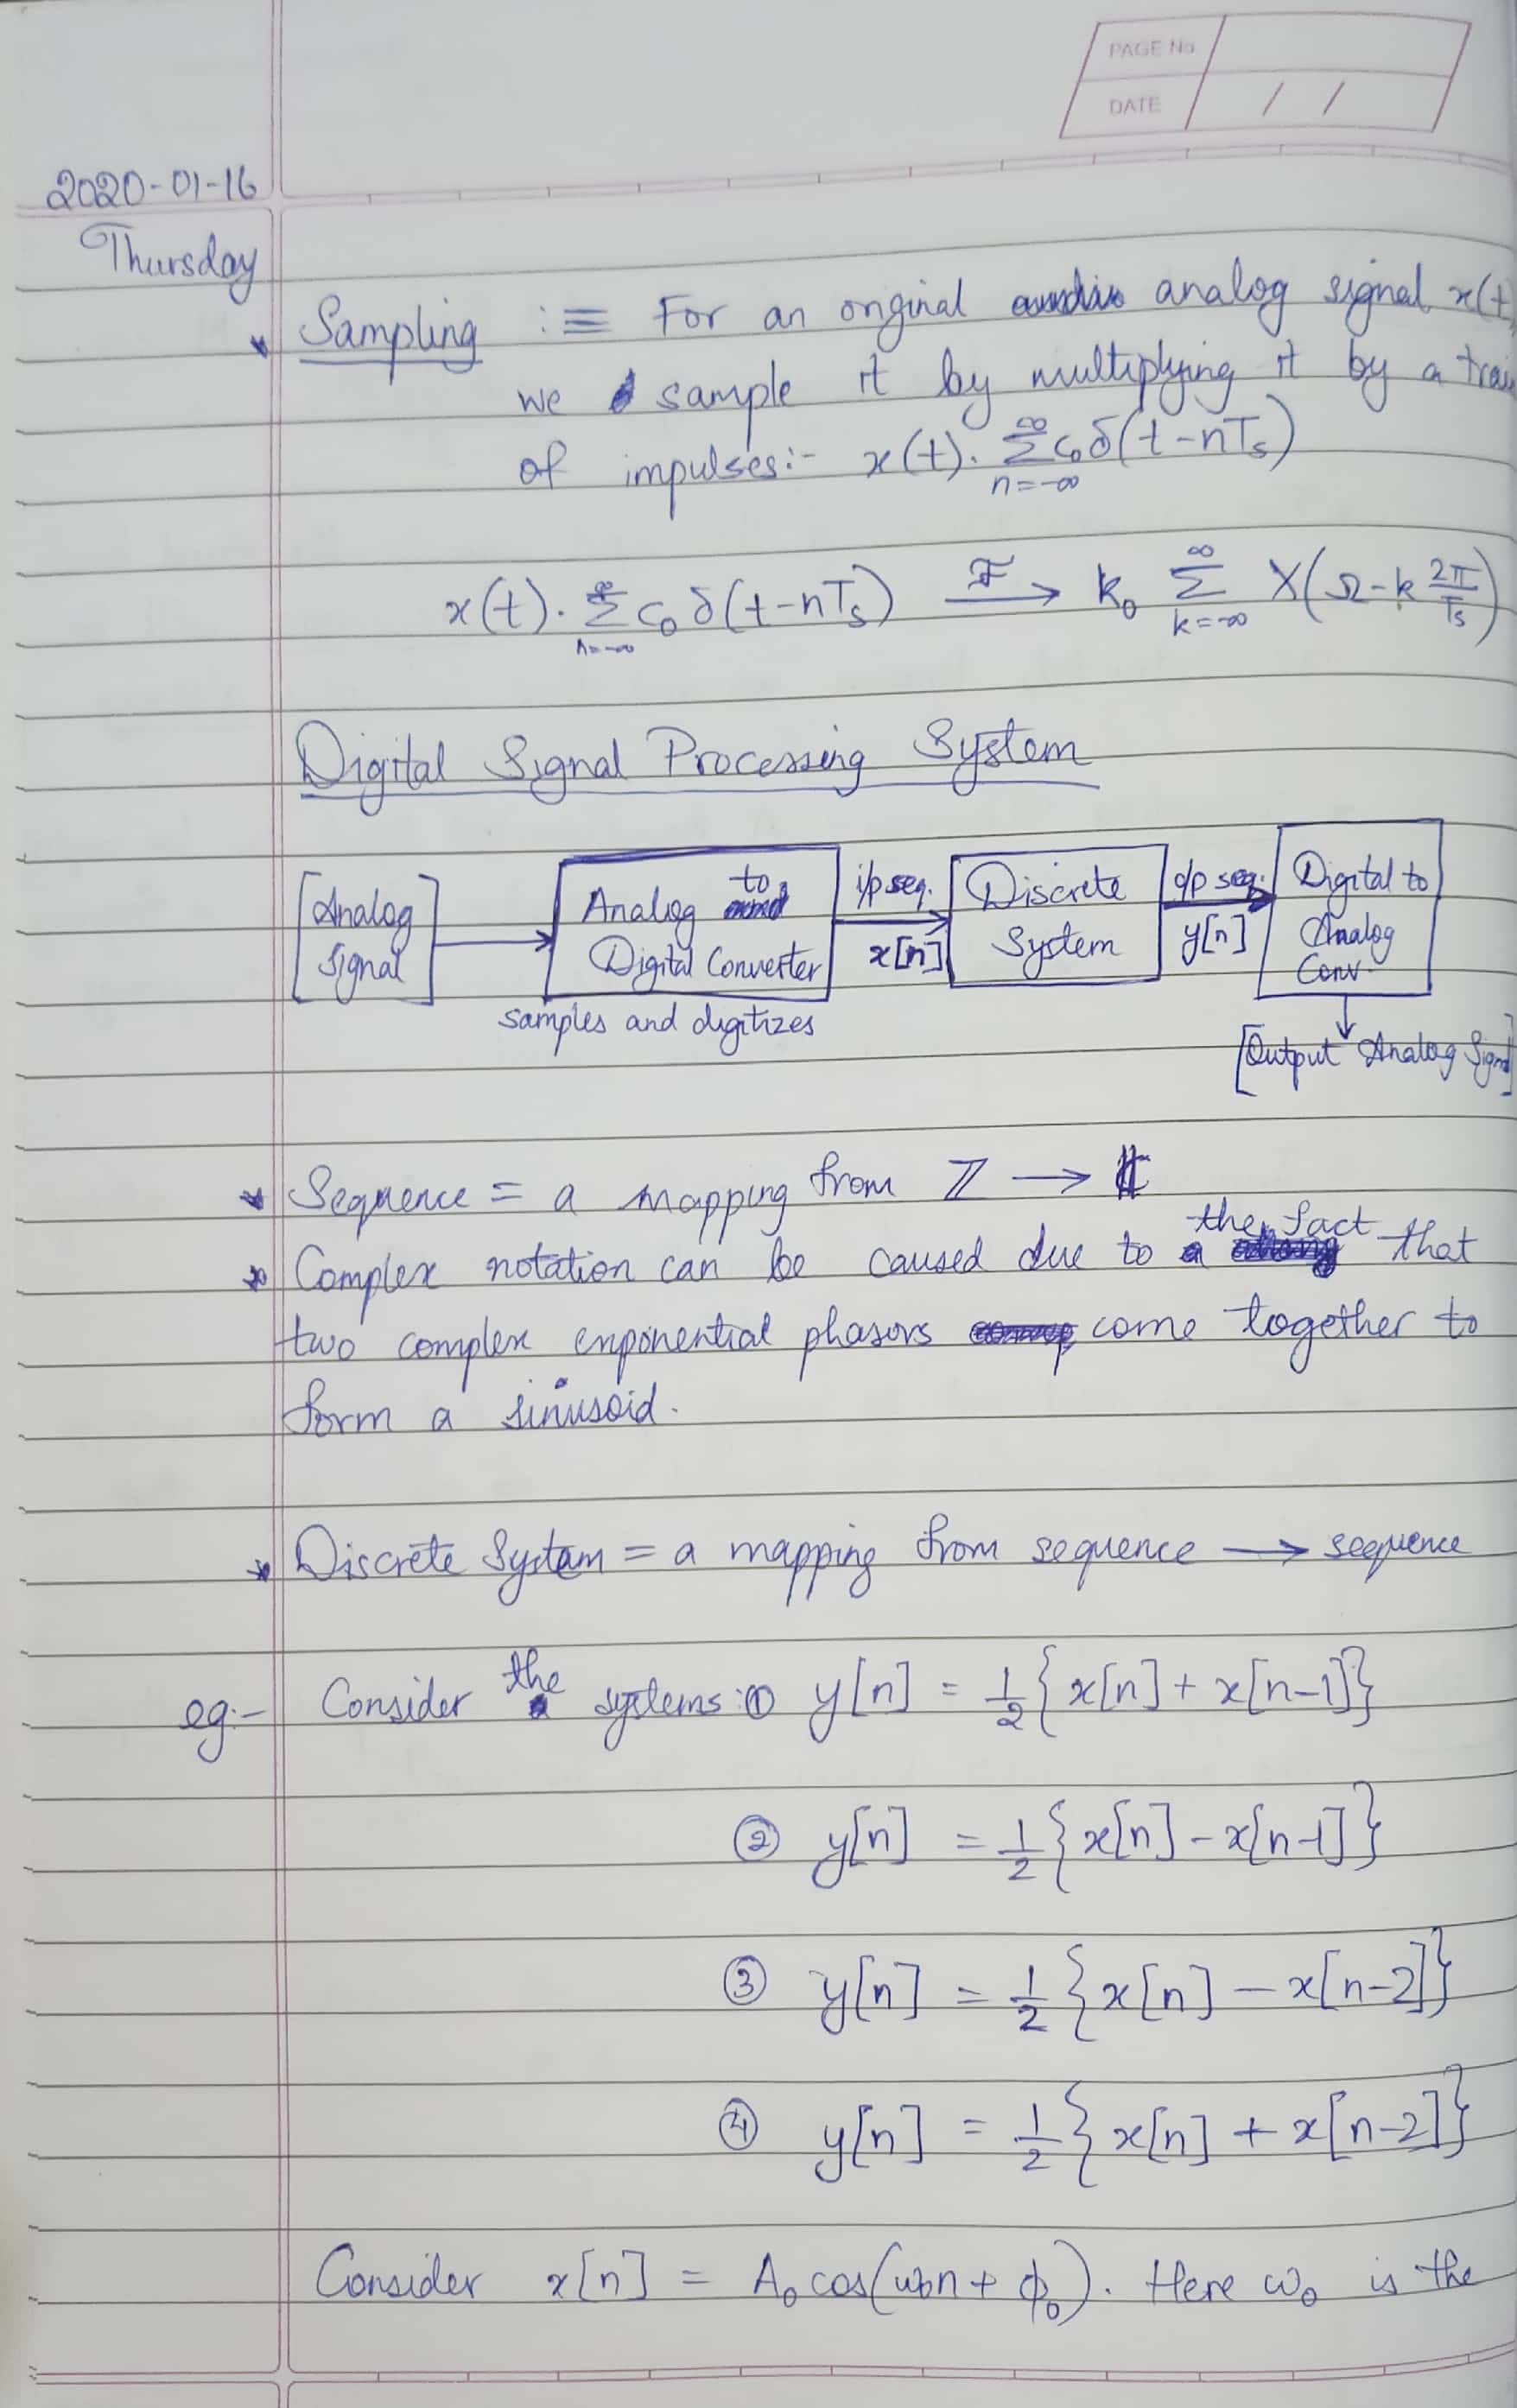 PAGE No
DATE / /
2020-01-16
Thursday
* Sampling :≡ For an original analog signal x(t)
we sample it by multiplying it by a train
of impulses:- x(t). ∞Σn=-∞ c₀δ(t-nTs)
x(t). ∞Σn=-∞ c₀δ(t-nTs) —F→ k₀ ∞Σk=-∞ X(Ω-k 2π/Ts)
Digital Signal Processing System
[Analog Signal] → Analog to Digital Converter — i/p seq. x[n] → Discrete System — o/p seq. y[n] → Digital to Analog Conv.
samples and digitizes
[Output Analog Signal]
* Sequence = a mapping from ℤ → ℂ
* Complex notation can be caused due to the fact that
two complex exponential phasors come together to
form a sinusoid.
* Discrete System = a mapping from sequence → sequence
eg:- Consider the systems: ① y[n] = 1/2 {x[n] + x[n-1]}
② y[n] = 1/2 {x[n] - x[n-1]}
③ y[n] = 1/2 {x[n] - x[n-2]}
④ y[n] = 1/2 {x[n] + x[n-2]}
Consider x[n] = A₀ cos(ω₀n + ϕ₀). Here ω₀ is the